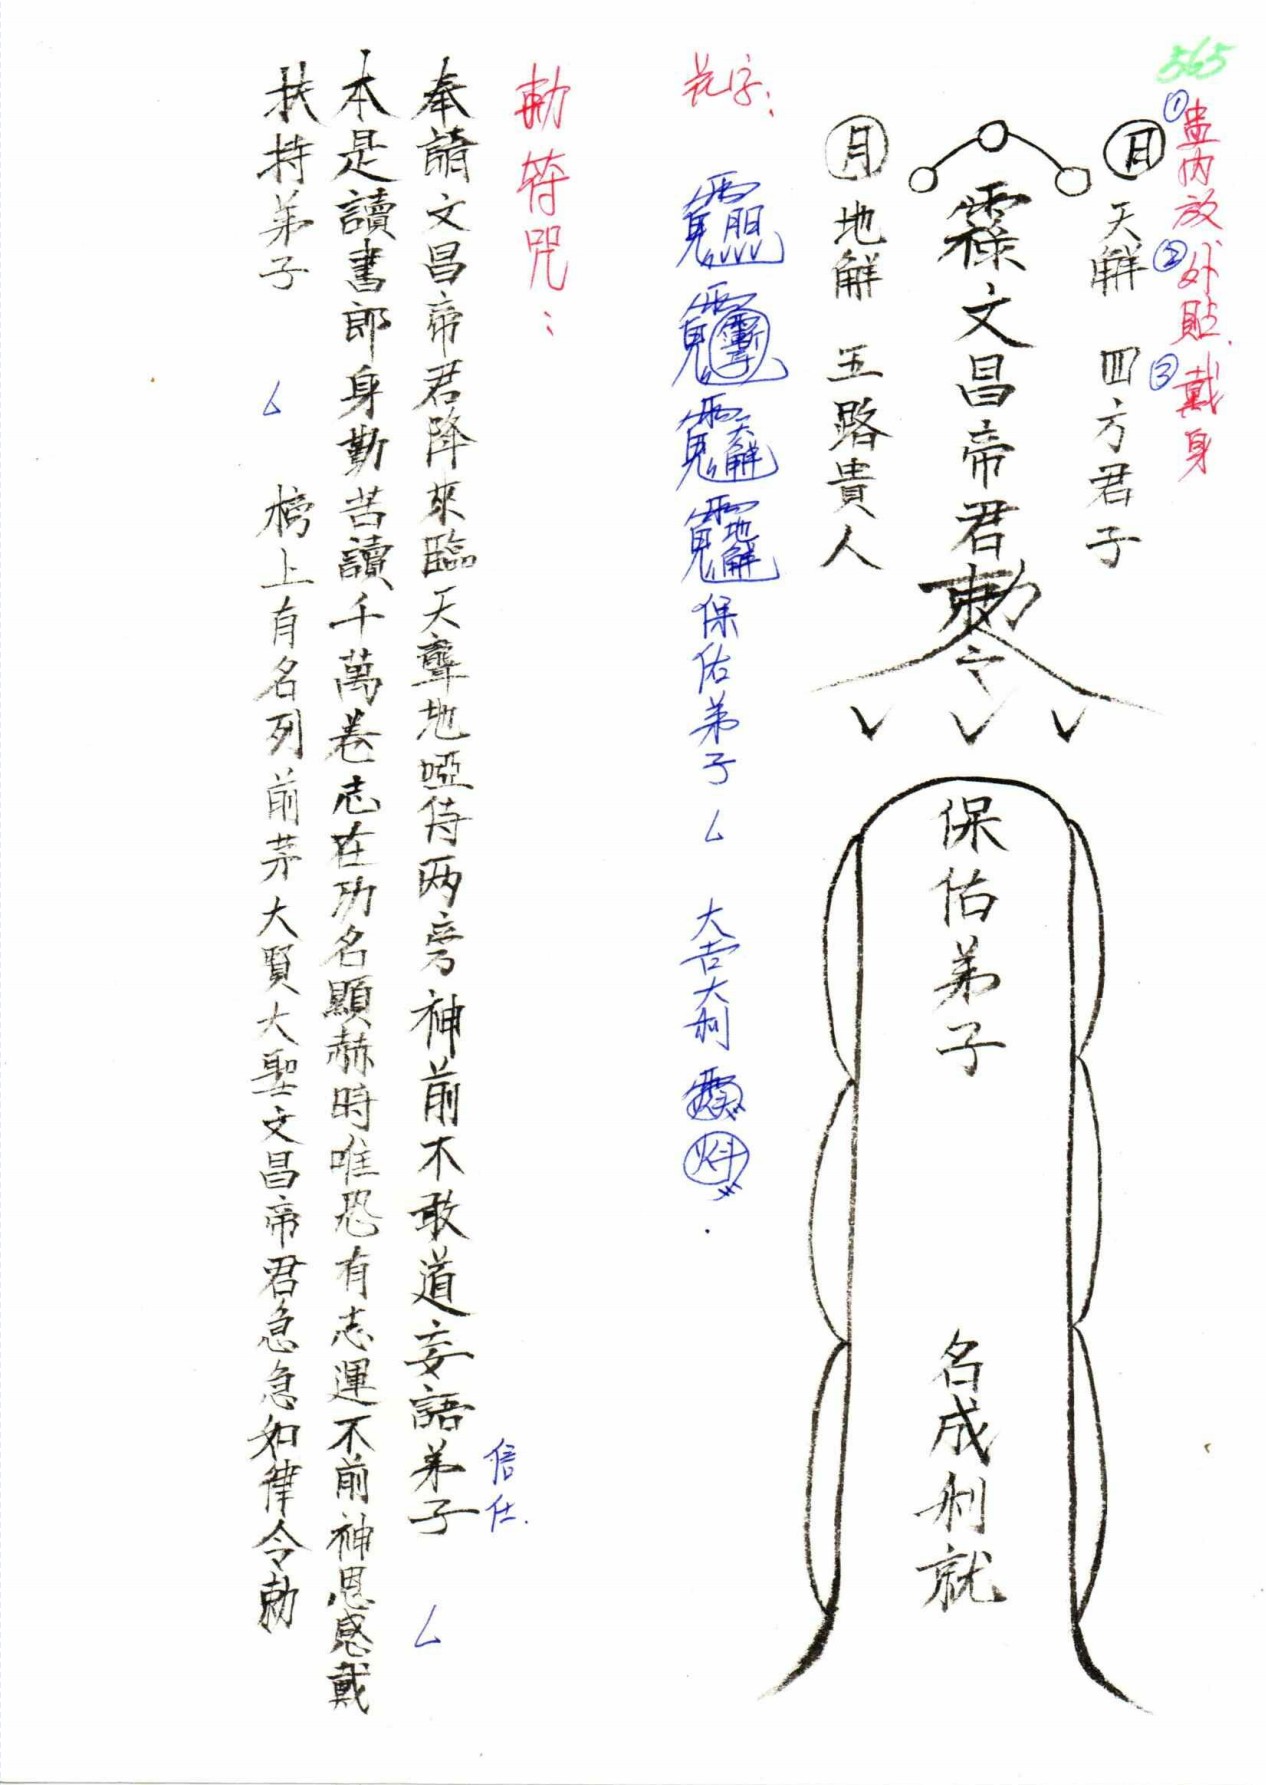 565
①盅内放②外貼③戴身
日 天解 四方君子
文昌帝君勅令
保佑弟子 名成利就
月 地解 五路貴人
花字：
保佑弟子ㄥ 大吉大利
勅符咒：
奉請文昌帝君降來臨天聾地啞侍两旁神前不敢道妄語弟子ㄥ
信仕.
本是讀書郎身勤苦讀千萬卷志在功名顯赫時唯恐有志運不前神恩感戴
扶持弟子ㄥ 榜上有名列前茅大賢大聖文昌帝君急急如律令勅